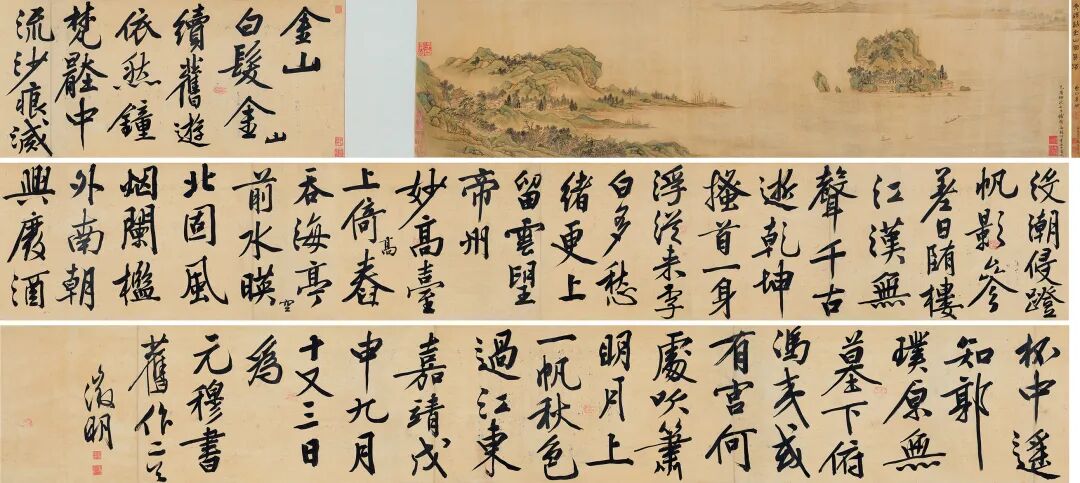 金山
白髮金山
續舊遊
依然鐘
梵壑中
流沙痕減
沒潮侵蹬
帆影參
差日陏樓
江漢無
聲千古
逝乾坤
搔首一身
浮從來李
白多愁
緒更上
留雲望
帝州
妙高臺
上倚高舂
吞海亭
前水暎空
北固風
烟闌檻
外南朝
興廢酒
杯中遙
知郭
璞原無
墓下俯
馮夷或
有宮何
處吹簫
明月上
一帆秋色
過江東
嘉靖戊
申九月
十又三日
為
元穆書
舊作二首
徵明